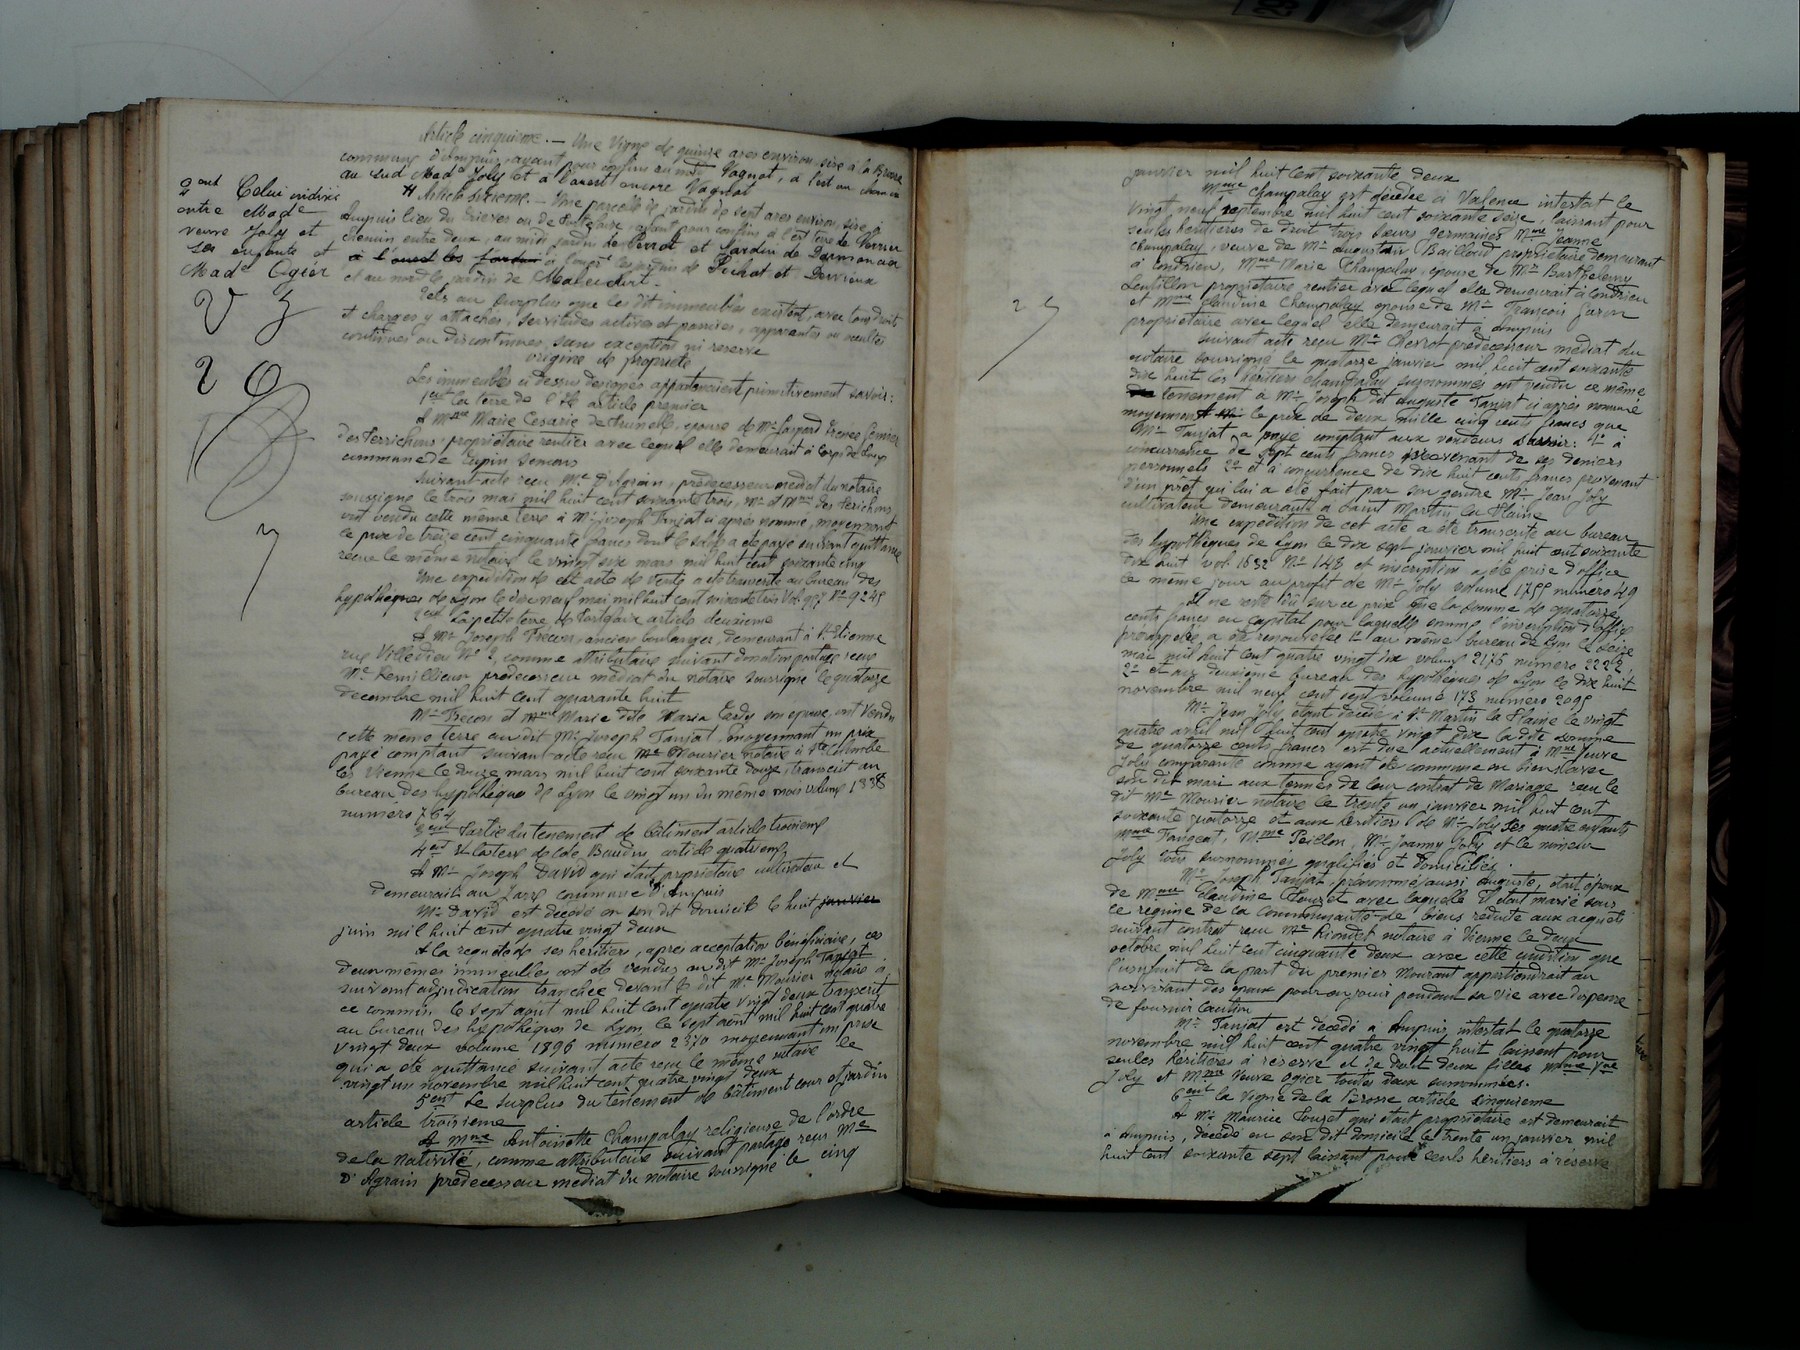 Article cinquieme. — Une Vigne de quinze ares environ, sise à la Brosse
commune d'Ampuis, ayant pour confins au nord Vagnat, à l'est un chemin
au sud Made Joly et à l'ouest encore Vagnat
Article sixieme. — Une parcelle de jardin de sept ares environ, sise à
Ampuis lieu du Trieves ou de ayant pour confins à l'est terre de Verrier
chemin entre deux, au midi jardin de Perrot et jardin de Darmancier
à l'ouest les jardin à l'ouest les jardins de Pichat et Dervieux
et au nord le jardin de
2ent Celui indivis
entre Made
veuve Joly et
ses enfants et
Made Ogier
Tels au surplus que les dit immeubles existent, avec tous droits
et charges y attachés, servitudes actives et passives, apparentes ou occultes
continues ou discontinues, sans exception ni reserve
origine de propriete
Les immeubles ci dessus designés appartenaient primitivement savoir:
1ent La terre de l'Ile article premier
A Mme Marie Cesarie de Prunelle, epouse de Mr Gaspard
des Terrichins, proprietaire rentier avec lequel elle demeurait à Corps de Loup
commune de Tupin Semons
Suivant acte reçu Me D'Agrain, predecesseur médiat du notaire
soussigné le trois mai mil huit cent soixante trois, Mr et Mme des Terichins
ont vendu cette même terre à Mr Joseph Tanjat ci après nommé, moyennant
le prix de treize cent cinquante francs dont le solde a été payé suivant quittance
recue le même notaire le vingt six mars mil huit cent soixante cinq
Une expedition de cet acte de vente a été transcrite au bureau des
hypotheques de Lyon le dix neuf mai mil huit cent soixante trois Vol 957 No 9245
2ent La petite terre de article deuxieme
A Mr Joseph Trecon, ancien boulanger demeurant à St Etienne
rue Villedieu No 2, comme attributaire suivant donation partage recue
Me Remillieux predecesseur médiat du notaire soussigné le quatorze
decembre mil huit cent quarante huit
Mr Trecon et Mme Marie dite Maria Tardy son epouse, ont vendu
cette même terre au dit Mr Joseph Tanjat, moyennant un prix
payé comptant suivant acte reçu Me Mourier notaire à Ste Colombe
les Vienne le douze mars mil huit cent soixante douze, transcrit au
bureau des hypotheques de Lyon le vingt un du meme mois volume 1338
numéro 764
3ent Partie du tenement de bâtiment article troisieme
4ent Et la terre de cote Baudin article quatrieme
A Mr Joseph David qui etait proprietaire cultivateur et
demeurait au Gare commune d'Ampuis
Mr David est decédé en son dit domicile le huit janvier
juin mil huit cent quatre vingt deux
A la requete de ses heritiers, apres acceptation bénéficiaire, ces
deux mêmes immeubles ont été vendus au dit Mr Joseph Tanjat
suivant adjudication tranchée devant le dit Me Mourier notaire à
ce commis le sept août mil huit cent quatre vingt deux transcrit
au bureau des hypothèques de Lyon, le sept août mil huit cent quatre
vingt deux volume 1896 numéro 2370 moyennant un prix
qui a été quittancé suivant acte reçu le même notaire le
vingt un novembre mil huit cent quatre vingt deux
5ent Le surplus du tenement de bâtiment cour et jardin
article troisieme
A Mme Antoinette Champalay religieuse de l'ordre
de la nativité, comme attributaire suivant partage recu Me
D'Agrain predecesseur mediat du notaire soussigné le cinq
janvier mil huit cent soixante deux
Mme Champalay est décédée à Valence intestat le
vingt neuf septembre mil huit cent soixante seize, laissant pour
seules heritieres de droit trois sœurs germaines Mme Jeanne
Champalay, veuve de Mr Augustin Bailloud proprietaire demeurant
à Condrieu, Mme Marie Champalay, epouse de Mr Barthelemy
Lentillon proprietaire rentier avec lequel elle demeurait à Condrieu
et Mme Claudine Champalay epouse de Mr François Garon
proprietaire avec lequel elle demeurait à Ampuis
Suivant acte reçu Me Chevrot predecesseur médiat du
notaire soussigné le quatorze janvier mil huit cent soixante
dix huit les héritiers Champalay susnommés ont vendu ce même
tenement à Mr Joseph dit Auguste Tanjat ci après nommé
moyennant le prix de deux mille cinq cents francs que
Mr Tanjat a payé comptant aux vendeurs savoir: 1o à
concurrence de sept cents francs provenant de ses deniers
personnels 2o et à concurrence de dix huit cents francs provenant
d'un prêt qui lui a été fait par son gendre Mr Jean Joly
cultivateur demeurant à Saint Martin la Plaine
Une expedition de cet acte a été transcrite au bureau
des hypothèques de Lyon le dix sept janvier mil huit cent soixante
dix huit vol 1632 No 148 et inscription a été prise d'office
le même jour au profit de Mr Joly volume 1755 numéro 49
Il ne reste dû sur ce prix que la somme de quatorze
cents francs en capital pour laquelle somme l'inscription d'office
prérappelée a été renouvelée 1o au même bureau de Lyon le seize
mai mil huit cent quatre vingt dix volume 2176 numéro 2222
2o et au deuxième bureau des hypothèques de Lyon le dix huit
novembre mil neuf cent sept volume 173 numéro 2095
Mr Jean Joly étant decédé à St Martin la Plaine le vingt
quatre avril mil huit cent quatre vingt dix la dite somme
de quatorze cents francs est due actuellement à Mme Veuve
Joly comparante comme ayant été commune en biens avec
son dit mari aux termes de leur contrat de Mariage recu le
dit Me Mourier notaire le trente un janvier mil huit cent
soixante quatorze et aux héritiers de Mr Joly ses quatre enfants
Mme Tangent, Mme Peillon, Mr Joanny Joly et le mineur
Joly tous surnommés qualifiés et domiciliés.
Mr Joseph Tanjat, prénommé aussi Auguste, était époux
de Mme Claudine Souzet avec laquelle il etait marié sous
le regime de la communauté de biens reduite aux acquets
suivant contrat recu Me Riondet notaire à Vienne le deux
octobre mil huit cent cinquante deux avec cette condition que
l'usufruit de la part du premier mourant appartiendrait au
survivant des epoux pour en jouir pendant sa vie avec dispense
de fournir caution
Mr Tanjat est décédé à Ampuis intestat le quatorze
novembre mil huit cent quatre vingt huit laissant pour
seules héritières à reserve et de droit deux filles Mme Vve
Joly et Mme Veuve Ogier toutes deux surnommées.
6ent La vigne de la Brosse article cinquieme
A Mr Maurice Souzet qui était proprietaire est demeurait
à Ampuis, décédé en son dit domicile le trente un janvier mil
huit cent soixante sept laissant pour seuls héritiers à réserve